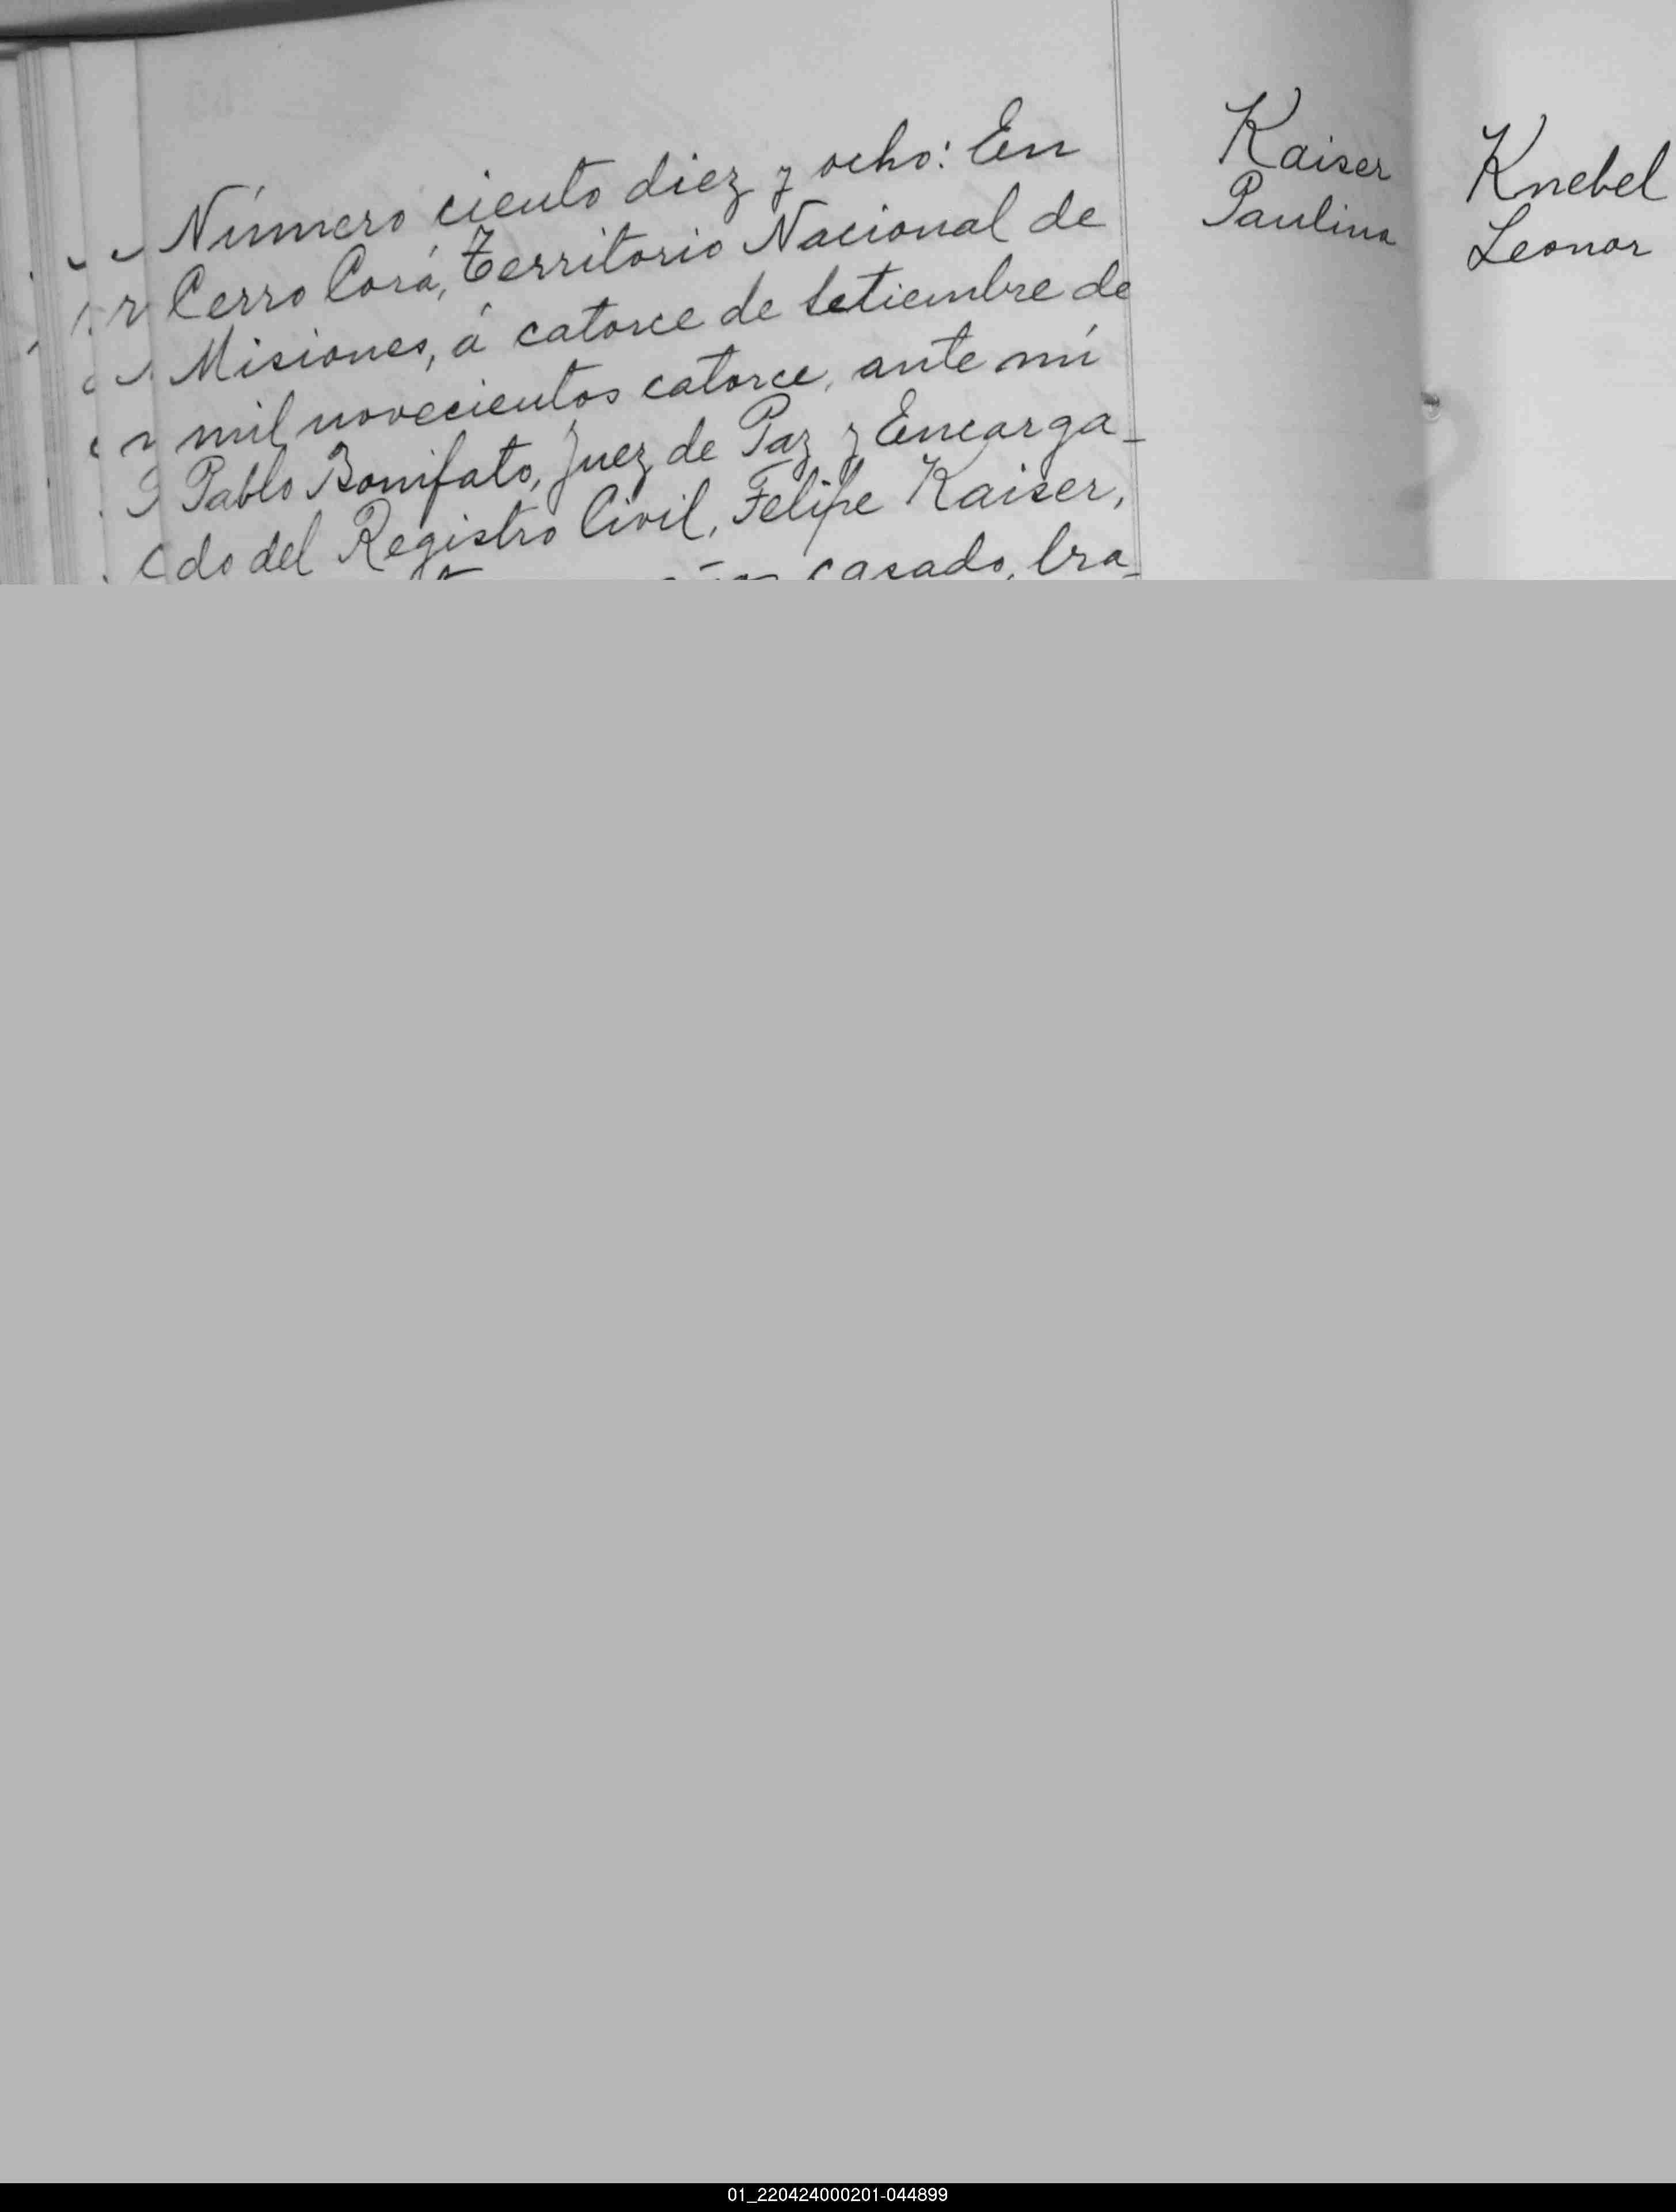 Número ciento diez y ocho: En
Cerro Corá, Territorio Nacional de
Misiones, á catorce de Setiembre de
mil novecientos catorce, ante mí
Pablo Bonifato, Juez de Paz y Encarga-
do del Registro Civil, Felipe Kaiser,
casado, bra-
Kaiser
Paulina
Knebel
Leonor
01_220424000201-044899